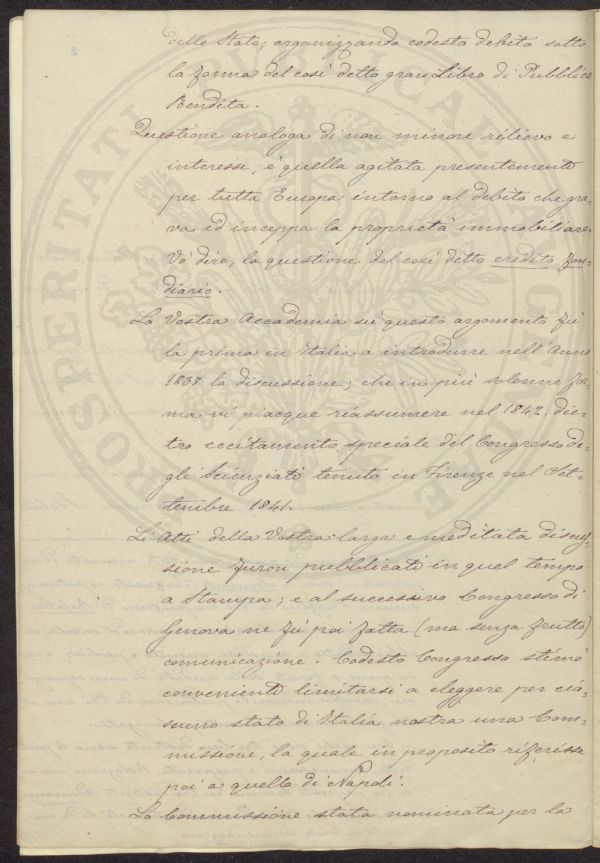 dello Stato; organizzando codesto debito sotto
la forma del così detto gran Libro di Pubblica
Rendita.
Questione analoga di non minore rilievo e
interesse, è quella agitata presentemente
per tutta Europa intorno al debito che gra-
va ed inceppa la proprietà immobiliare.
Vò dire, la questione del così detto credito fon-
diario.
La Vostra Accademia su questo argomento fù
la prima in Italia a introdurre nell'Anno
1837 la discussione; che in più solenne for-
ma vi piacque riassumere nel 1842. die-
tro eccitamento speciale del Congresso de-
gli Scienziati tenuto in Firenze nel Set-
tembre 1841.
Li Atti della Vostra larga e meditata discus-
sione furon pubblicati in quel tempo
a Stampa; e al successivo Congresso di
Genova ne fù poi fatta (ma senza frutto)
comunicazione. Codesto Congresso stimò
conveniente limitarsi a eleggere per cia-
scuno stato di Italia nostra una Com-
missione, la quale in proposito riferisse
poi a quello di Napoli.
La Commissione stata nominata per la
PROSPERITATI PUBLICAE AUGENDAE